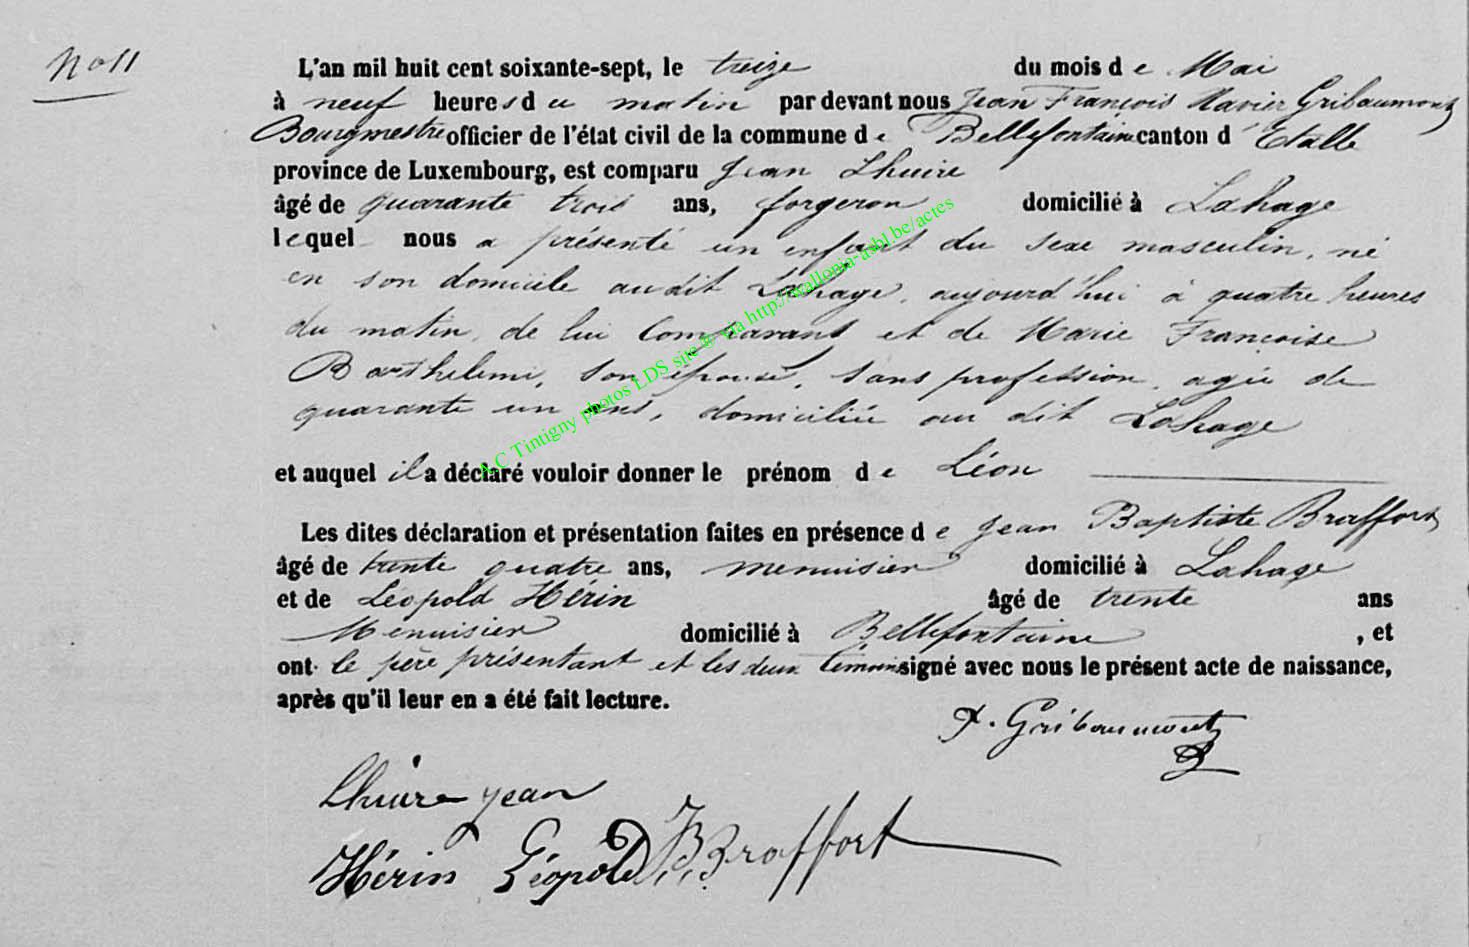 No 11
L'an mil huit cent soixante-sept, le treize du mois de Mai
à neuf heures du matin par devant nous Jean François Xavier Gribaumont
Bourgmestre officier de l'état civil de la commune de Bellefontaine canton d'Etalle
province de Luxembourg, est comparu Jean Lhuire
âgé de quarante trois ans, forgeron domicilié à Lahage
lequel nous a présenté un enfant du sexe masculin, né
en son domicile audit Lahage, aujourd'hui à quatre heures
du matin, de lui Comparant et de Marie Françoise
Barthelemi, son épouse, sans profession, agée de
quarante un ans, domiciliée au dit Lahage
et auquel il a déclaré vouloir donner le prénom de Léon
Les dites déclaration et présentation faites en présence de Jean Baptiste Braffort
âgé de trente quatre ans, menuisier domicilié à Lahage
et de Léopold Hérin âgé de trente ans
Menuisier domicilié à Bellefontaine , et
ont le père présentant et les deux témoins signé avec nous le présent acte de naissance,
après qu'il leur en a été fait lecture.
X. Gribaumont
Lhuire jean
Hérin Léopold J.B. Braffort
A.C Tintigny photos LDS site @ via http://wallonia-asbl.be/actes